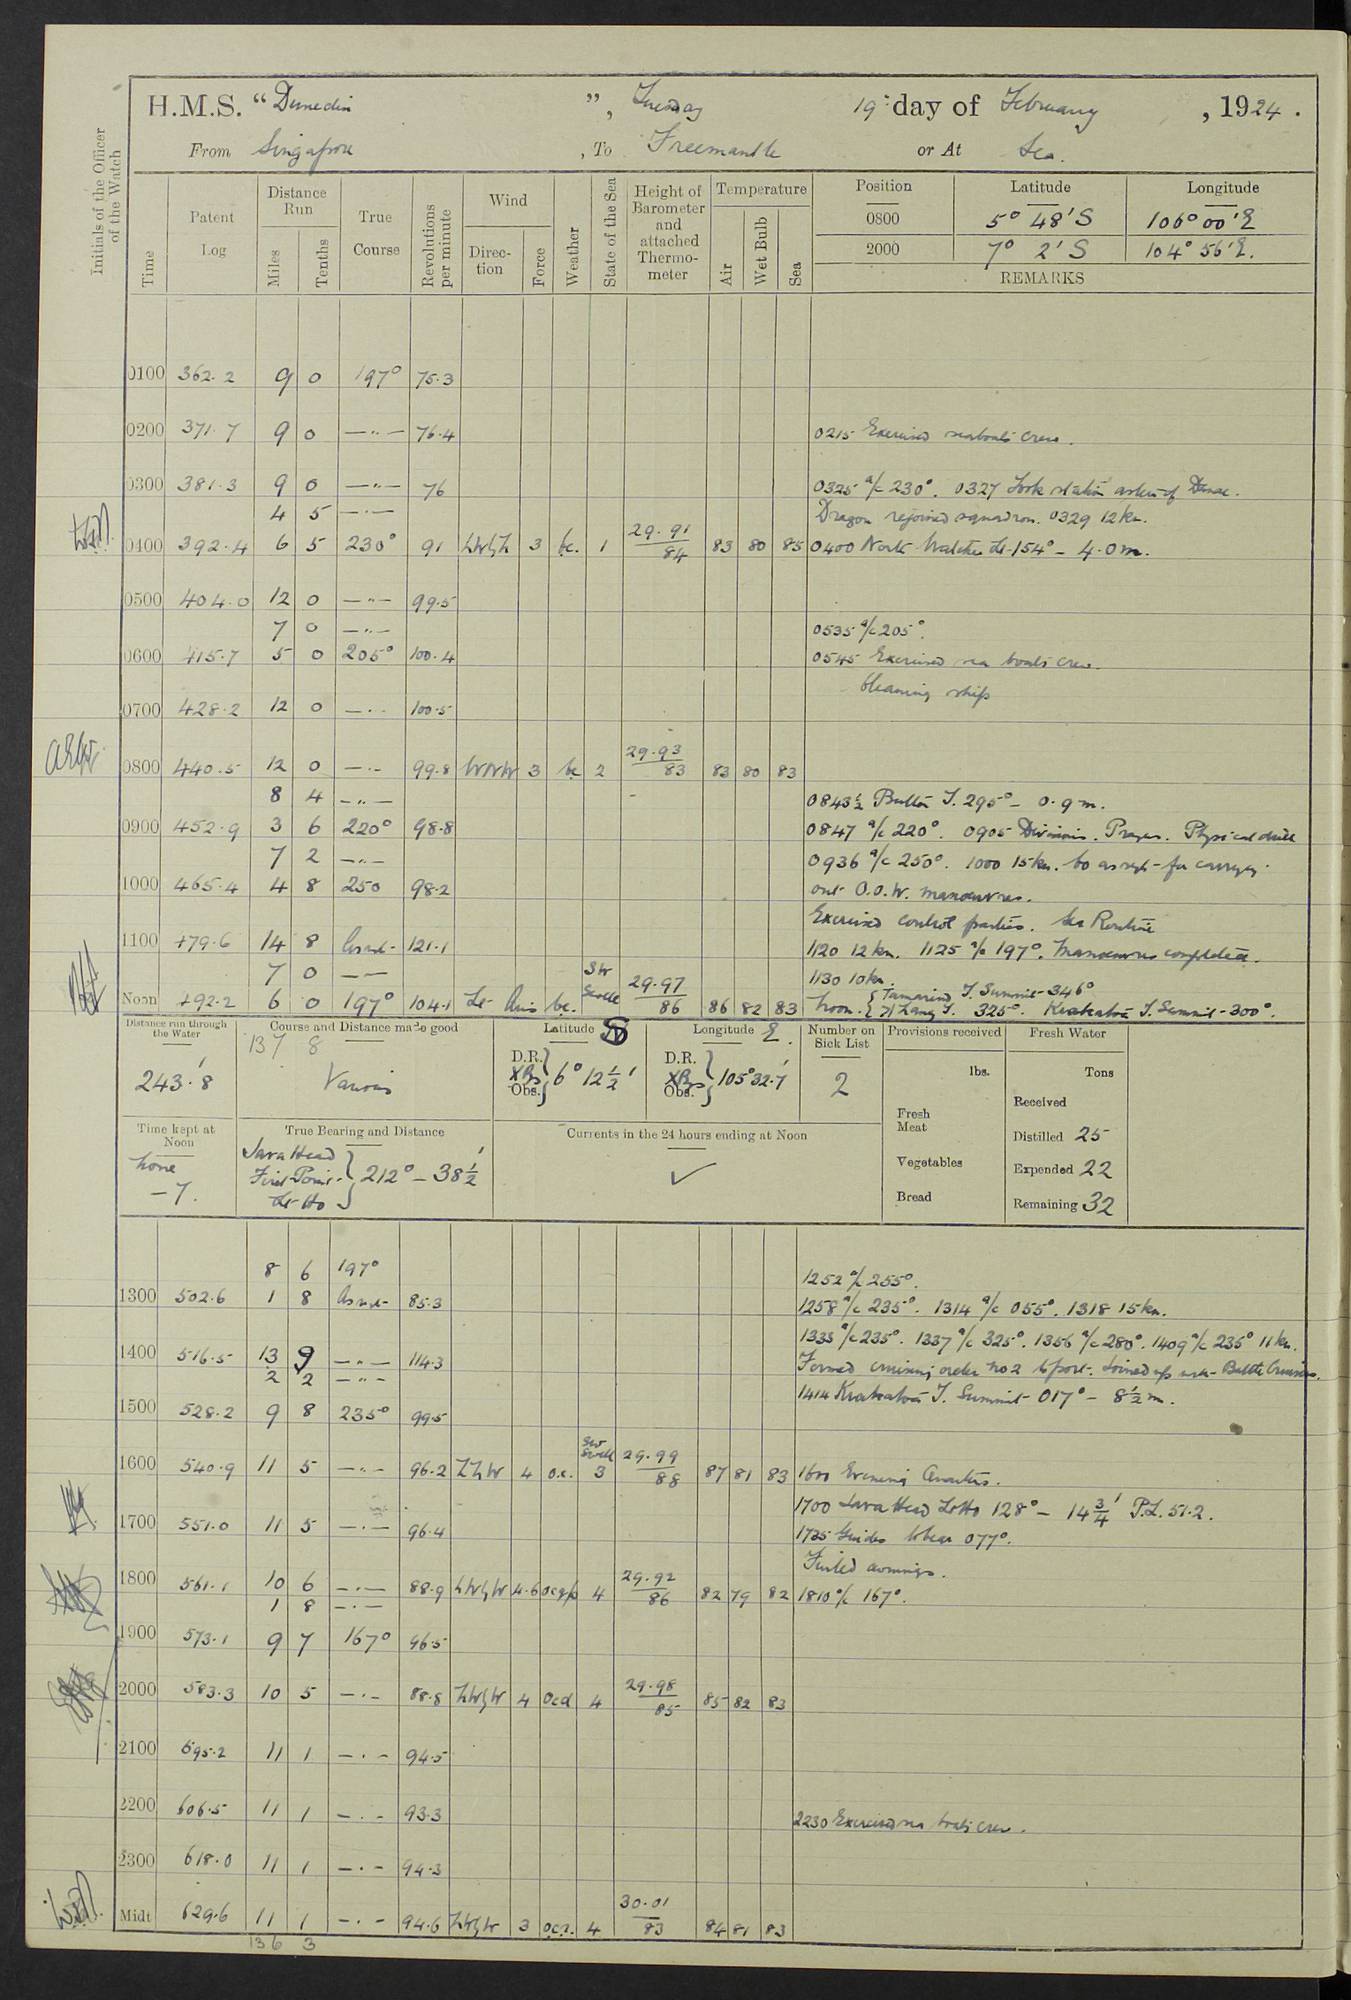 H.M.S. "Dunedin", Tuesday 19th day of February, 1924.
From Singapore, To Freemantle or At Sea.
Initials of the Officer of the Watch
Time
Patent Log
Distance Run
Miles
Tenths
True Course
Revolutions per minute
Wind
Direction
Force
Weather
State of the Sea
Height of Barometer and attached Thermometer
Temperature
Air
Wet Bulb
Sea
Position Latitude Longitude
0800 5° 48' S 106° 00' E
2000 7° 2' S 104° 56' E.
REMARKS
0100 362.2 9 0 197° 75.3
0200 371.7 9 0 —"— 76.4 0215 Exercised seaboats crew.
0300 381.3 9 0 —"— 76 0325 a/c 230°. 0327 Took station astern of Danae.
4 5 —"— Dragon rejoined squadron. 0329 12 kn.
0400 392.4 6 5 230° 91 3 bc. 1 29.91 84 83 80 85 0400 North Watcher Lt. 154° — 4.0 m.
0500 404.0 12 0 —"— 99.5
7 0 —"— 0535 a/c 205°.
0600 415.7 5 0 205° 100.4 0545 Exercised sea boats crew.
Cleaning ship
0700 428.2 12 0 —"— 100.5
0800 440.5 12 0 —"— 99.8 WNW 3 bc 2 29.93 83 83 80 83
8 4 —"— 0843½ Button I. 295° — 0.9 m.
0900 452.9 3 6 220° 98.8 0847 a/c 220°. 0905 Divisions. Prayers. Physical drill
7 2 —"— 0936 a/c 250°. 1000 15 kn. Co as reqt for carrying
1000 465.4 4 8 250 98.2 out O.O.W. manoeuvres.
Exercised control parties. Sea Routine
1100 479.6 14 8 As reqd 121.1 1120 12 kn. 1125 a/c 197°. Manoeuvres completed.
7 0 —— SW Swell 1130 10 kn.
Noon 492.2 6 0 197° 104.1 Lt Airs bc. 29.97 86 86 82 83 Noon. { Tamarind I. Summit 346° 325°. Krakatoa I. Summit 300°.
Distance run through the Water
243.8
Course and Distance made good
137 8
Various
Latitude S
D.R. Obs. 6° 12½'
Longitude E.
D.R. Obs. 105° 32.7'
Number on Sick List
2
Provisions received
lbs.
Fresh Meat
Vegetables
Bread
Fresh Water
Tons
Received
Distilled 25
Expended 22
Remaining 32
Time kept at Noon
Zone
-7.
True Bearing and Distance
Java Head First Point Lt Ho } 212° — 38½'
Currents in the 24 hours ending at Noon
✓
8 6 197° 1252 a/c 255°.
1300 502.6 1 8 As reqd 85.3 1258 a/c 235°. 1314 a/c 055°. 1318 15 kn.
1333 a/c 235°. 1337 a/c 325°. 1356 a/c 280°. 1409 a/c 235° 11 kn.
1400 516.5 13 9 —"— 114.3 Formed cruising order No 2 to port. Joined up with Battle Cruisers.
2 2 —"— 1414 Krakatoa I. Summit 017° — 8½ m.
1500 528.2 9 8 235° 99.5
1600 540.9 11 5 —"— 96.2 4 o.c. SW Swell 3 29.99 88 87 81 83 1600 Evening Quarters.
1700 Java Head Lt Ho 128° — 14¾' P.L. 51.2.
1700 551.0 11 5 —"— 96.4 1725 Guides to bear 077°.
Furled awnings.
1800 561.1 10 6 —"— 88.9 4.6 4 29.92 86 82 79 82 1810 a/c 167°.
1 8 —"—
1900 573.1 9 7 167° 96.5
2000 583.3 10 5 —"— 88.8 4 ocd 4 29.98 85 85 82 83
2100 595.2 11 1 —"— 94.5
2200 606.5 11 1 —"— 93.3 2230 Exercised sea boats crew.
2300 618.0 11 1 —"— 94.3
Midt 629.6 11 1 —"— 94.6 3 4 30.01 83 84 81 83
136 3